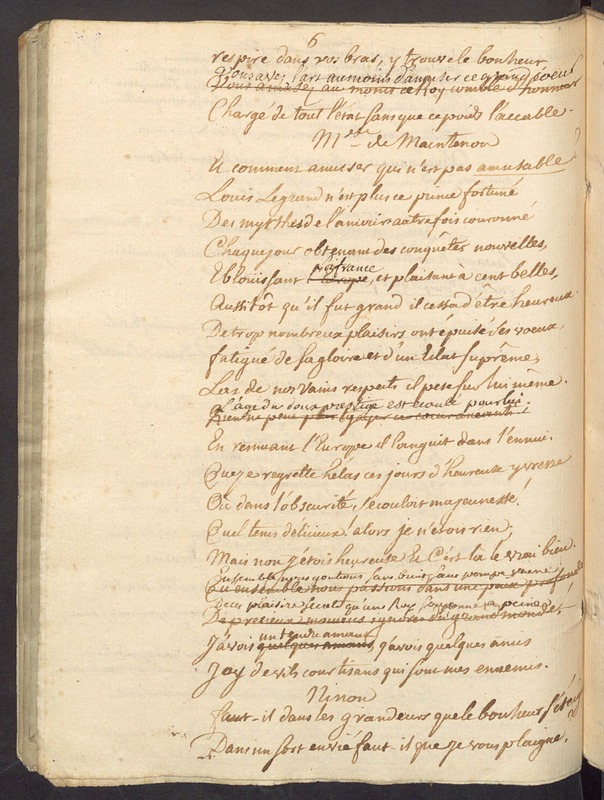 6
respire dans vos bras, y trouve le bonheur
Vous avez l'art au moins d'amuser ce grand coeur
Vous amusez au moins ce Roy comblé d'honneurs
Chargé de tout l'état sans que ce poids l'accable.
Mme de Maintenon
Et comment amuser qui n'est pas amusable?
Louis Legrand n'est plus ce prince fortuné
Des myrthes de l'amour autrefois couronné
Chaque jour obtenant des conquêtes nouvelles,
la france
Eblouissant l'Europe, et plaisant à cent belles,
Aussitôt qu'il fut grand il cessa d'être heureux.
De trop nombreux plaisirs ont épuisé ses voeux,
fatigué de sa gloire et d'un Eclat suprême,
Las de nos vains respects il pese sur lui même.
L'âge du doux prestige est ecoulé pour lui.
Rien ne peut plus egayer ce coeur aneanti
En remuant l'Europe il languit dans l'ennui.
Que je regrette hélas ces jours d'heureuse yvresse
Où dans l'obscurité, s'écouloit ma jeunesse!
Quel tems délicieux! alors je n'etois rien,
Mais non j'étois heureuse Et C'est là le vrai bien.
Ensemble nous goutions, sans bruit, sans pompe vaine
Où ensemble nous passions dans une paix profonde
Des plaisirs secrets qu'un Roy soupçonne a peine
De precieux momens ignorés du grand monde
un tendre amant
J'avois quelques amans, j'avois quelques amis
J'ay de vils courtisans qui sont mes ennemis.
Ninon
faut-il dans les grandeurs que le bonheur s'éteigne
Dans un sort envié faut-il que je vous plaigne,